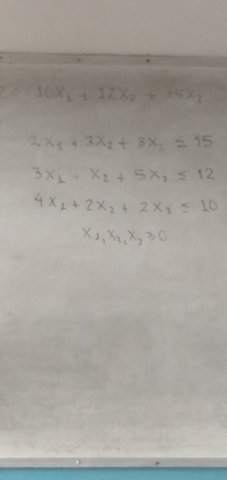 Z = 10X₁ + 12X₂ + 15X₃
2X₁ + 3X₂ + 3X₃ ≤ 15
3X₁ + X₂ + 5X₃ ≤ 12
4X₁ + 2X₂ + 2X₃ ≤ 10
X₁, X₂, X₃ ≥ 0